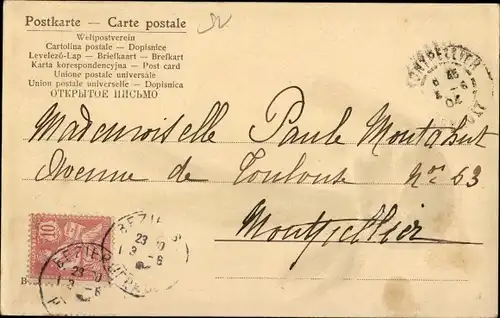 Postkarte — Carte postale
Weltpostverein
Cartolina postale — Dopisnice
Levelező-Lap — Briefkaart — Brefkort
Karta korespondencyjna — Post card
Unione postale universale
Union postale universelle — Dopisnica
ОТКРЫТОЕ ПИСЬМО
MONTPELLIER
Mademoiselle Paule Montahut
Avenue de Toulouse No 53
Montpellier
10
BEZIERS
23 10
BEZIERS
23 10